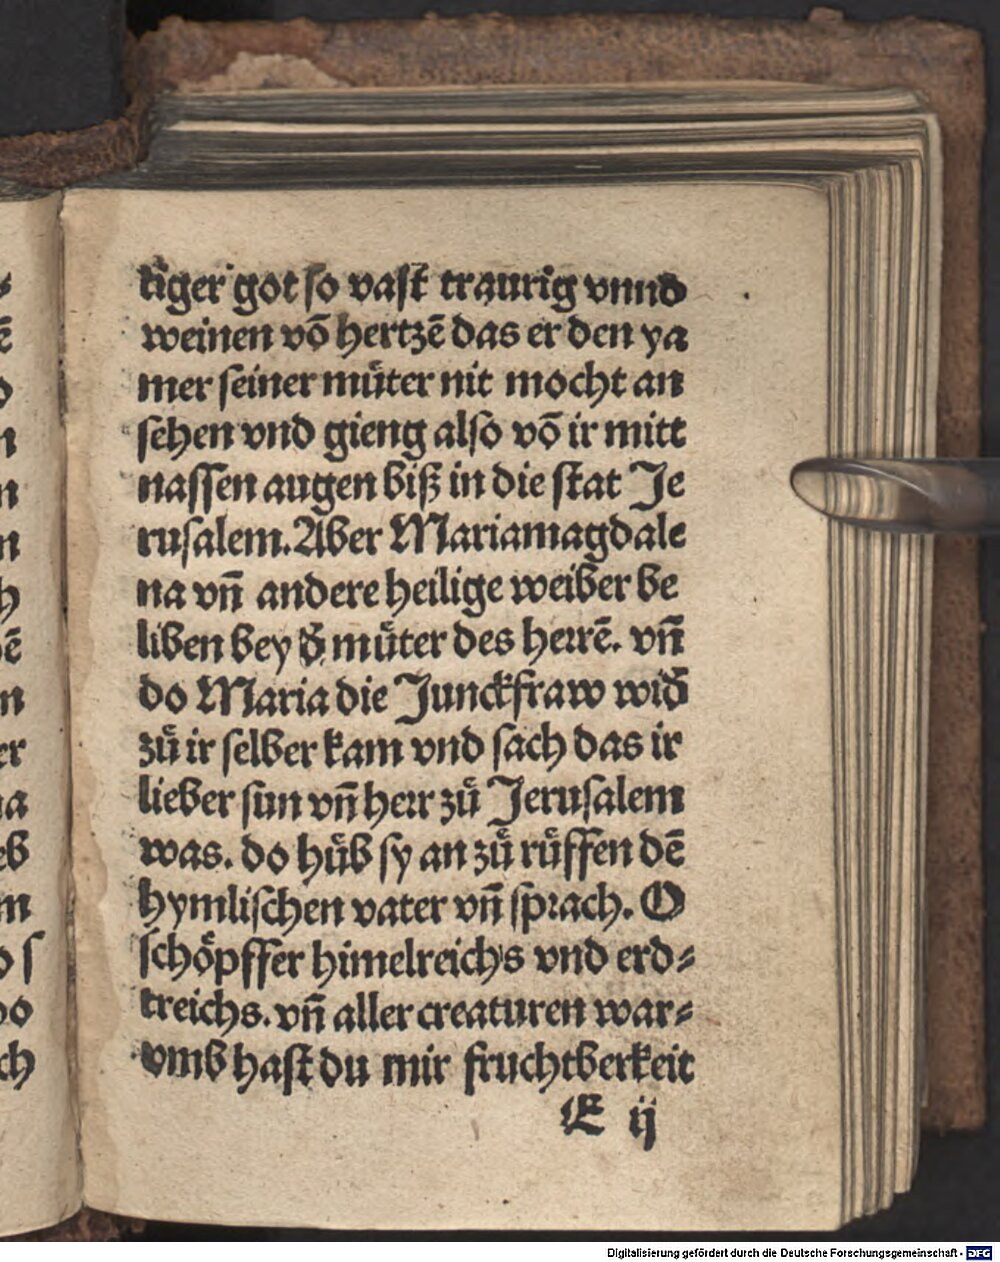 tiger got so vast traurig vnnd
weinen võ hertzẽ das er den ya
mer seiner muͤter nit mocht an
sehen vnd gieng also võ ir mitt
nassen augen biß in die stat Je
rusalem. Aber Mariamagdale
na vñ andere heilige weiber be
liben bey d̄ muͤter des herrẽ. vñ
do Maria die Junckfraw wid̄
zuͤ ir selber kam vnd sach das ir
lieber sun vñ herr zuͤ Jerusalem
was. do huͤb sy an zuͤ ruͤffen dẽ
hymlischen vater vñ sprach. O
schoͤpffer himelreichs vnd erd⸗
treichs. vñ aller creaturen war⸗
vmb hast du mir fruchtberkeit
E ij
Digitalisierung gefördert durch die Deutsche Forschungsgemeinschaft - DFG